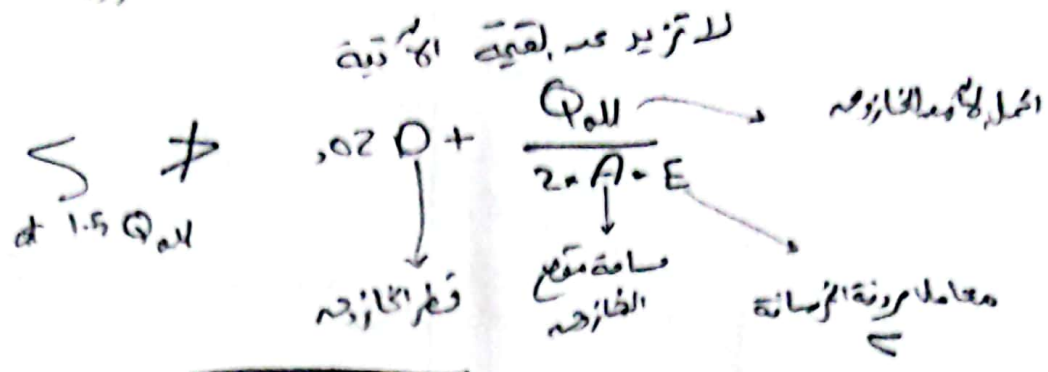 لا تزيد عن القيمة الآتية
S ≯ ,02 D + Qall / 2 * A * E
at 1.5 Qall
الحمل الآمن للخازوق
قطر الخازوق
مساحة مقطع
الخازوق
معامل مرونة الخرسانة